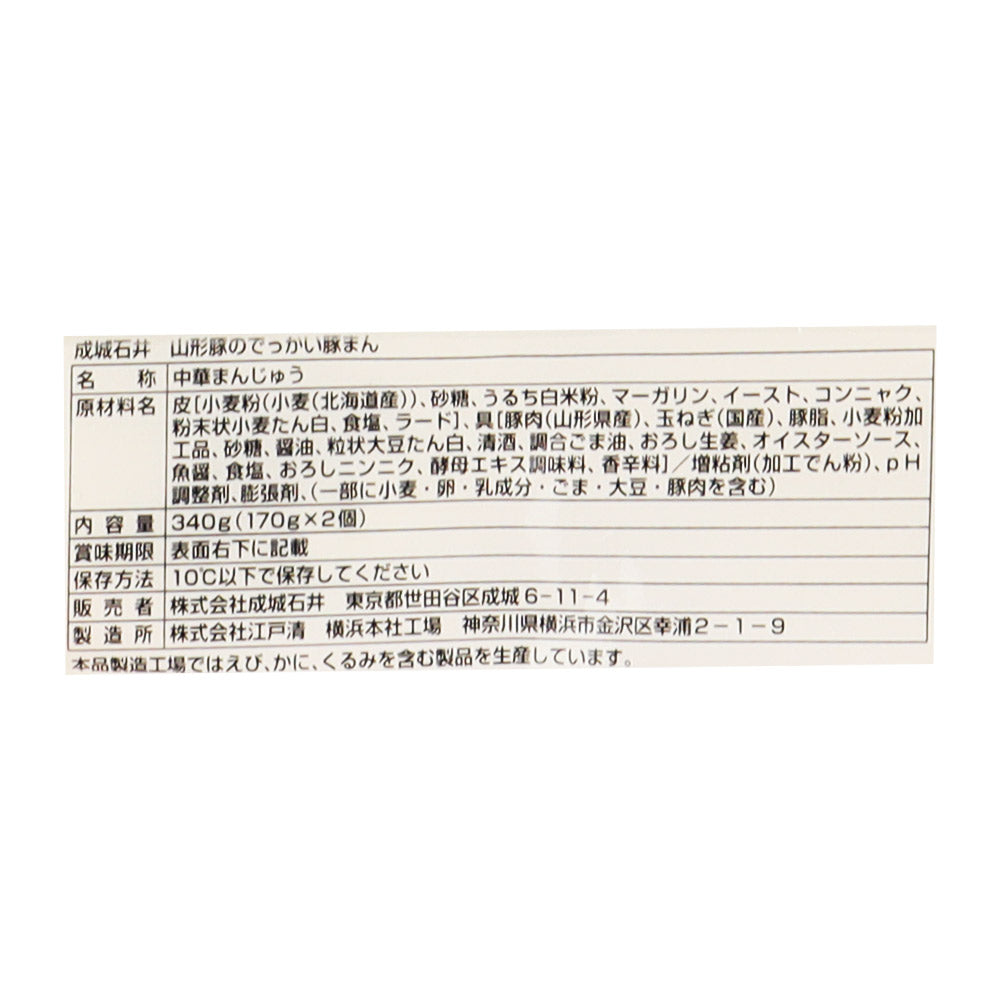 成城石井　山形豚のでっかい豚まん
名称　中華まんじゅう
原材料名　皮[小麦粉(小麦(北海道産))、砂糖、うるち白米粉、マーガリン、イースト、コンニャク、
粉末状小麦たん白、食塩、ラード]、具[豚肉(山形県産)、玉ねぎ(国産)、豚脂、小麦粉加
工品、砂糖、醤油、粒状大豆たん白、清酒、調合ごま油、おろし生姜、オイスターソース、
魚醤、食塩、おろしニンニク、酵母エキス調味料、香辛料]／増粘剤(加工でん粉)、pH
調整剤、膨張剤、(一部に小麦・卵・乳成分・ごま・大豆・豚肉を含む)
内容量　340g(170g×2個)
賞味期限　表面右下に記載
保存方法　10℃以下で保存してください
販売者　株式会社成城石井　東京都世田谷区成城6-11-4
製造所　株式会社江戸清　横浜本社工場　神奈川県横浜市金沢区幸浦2-1-9
本品製造工場ではえび、かに、くるみを含む製品を生産しています。